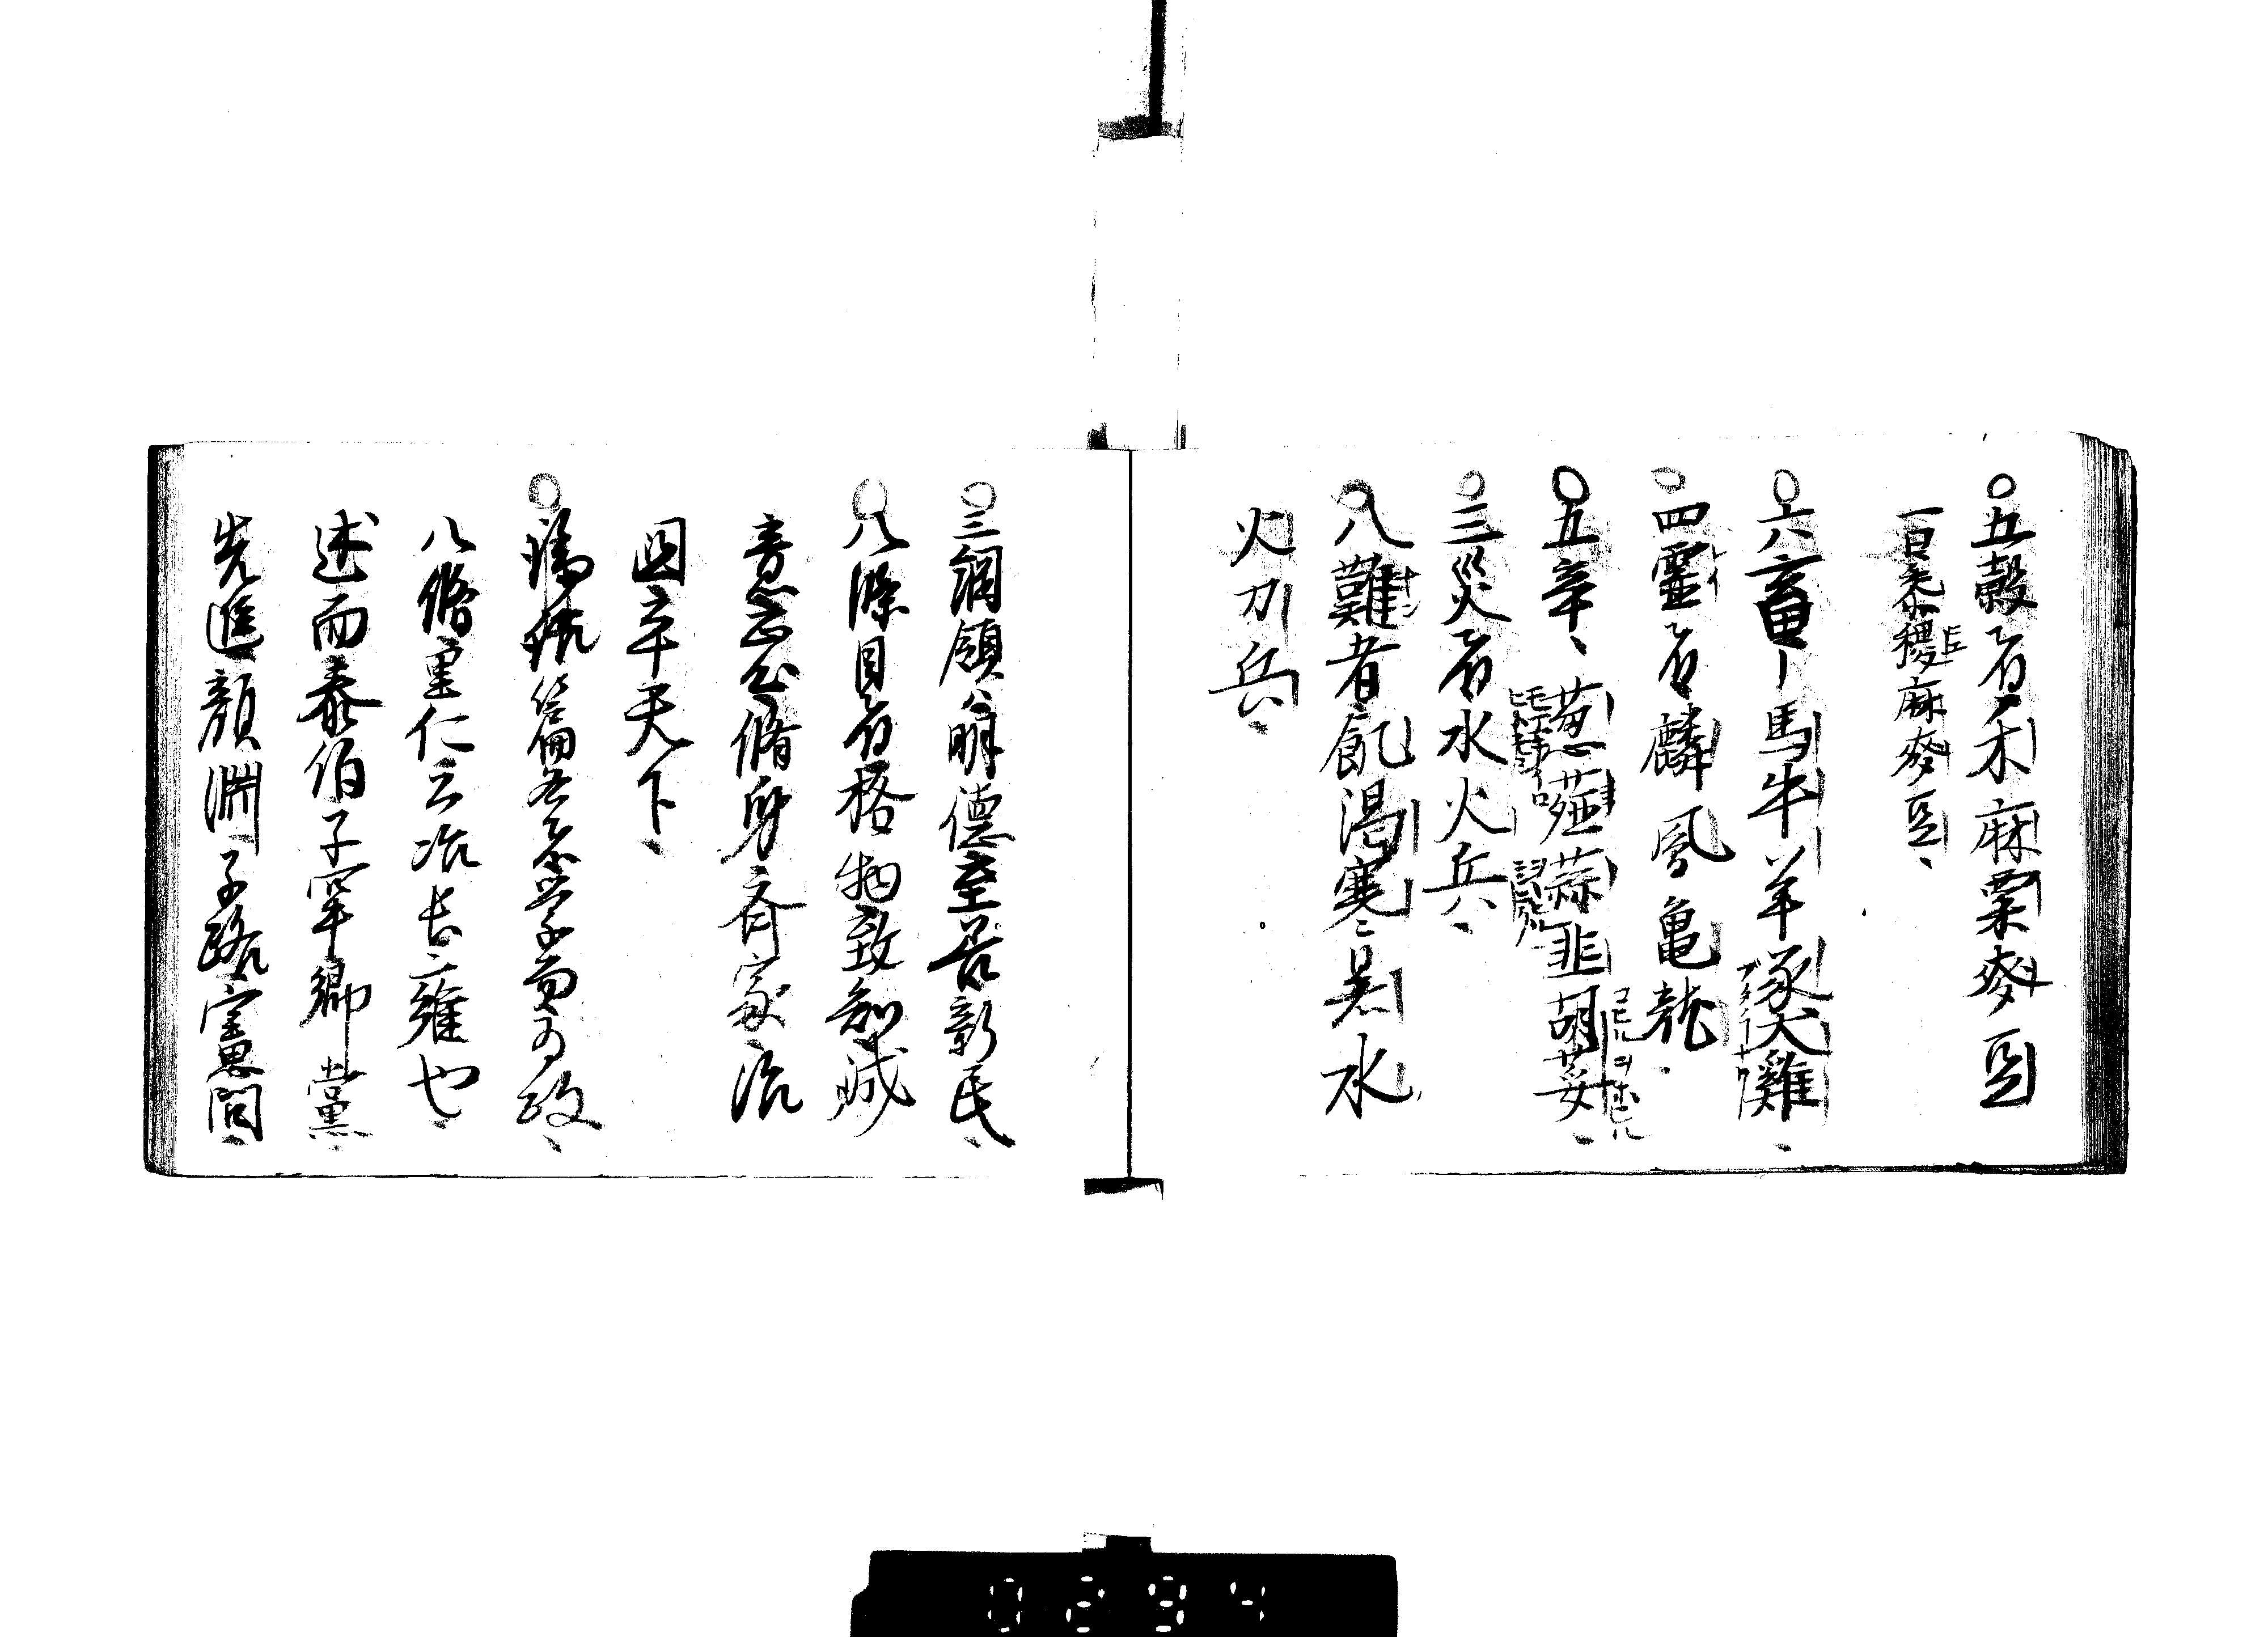 ○五穀者禾麻粟麥豆
一曰黍稷麻麥豆
○六畜ー馬牛羊豕犬雞
○四靈者麟鳳亀龍
○五辛 葱 蒜韮胡荽
○三災者水火兵
○八難者飢渇寒暑水
火刀兵
○三綱領八明德至善新民
○八條目者格物致知誠
意正心脩身齊家治
国平天下
○論語篇 学而為政
八脩里仁公冶長雍也
述而泰伯子罕郷黨
先進顔淵子路憲問
0294